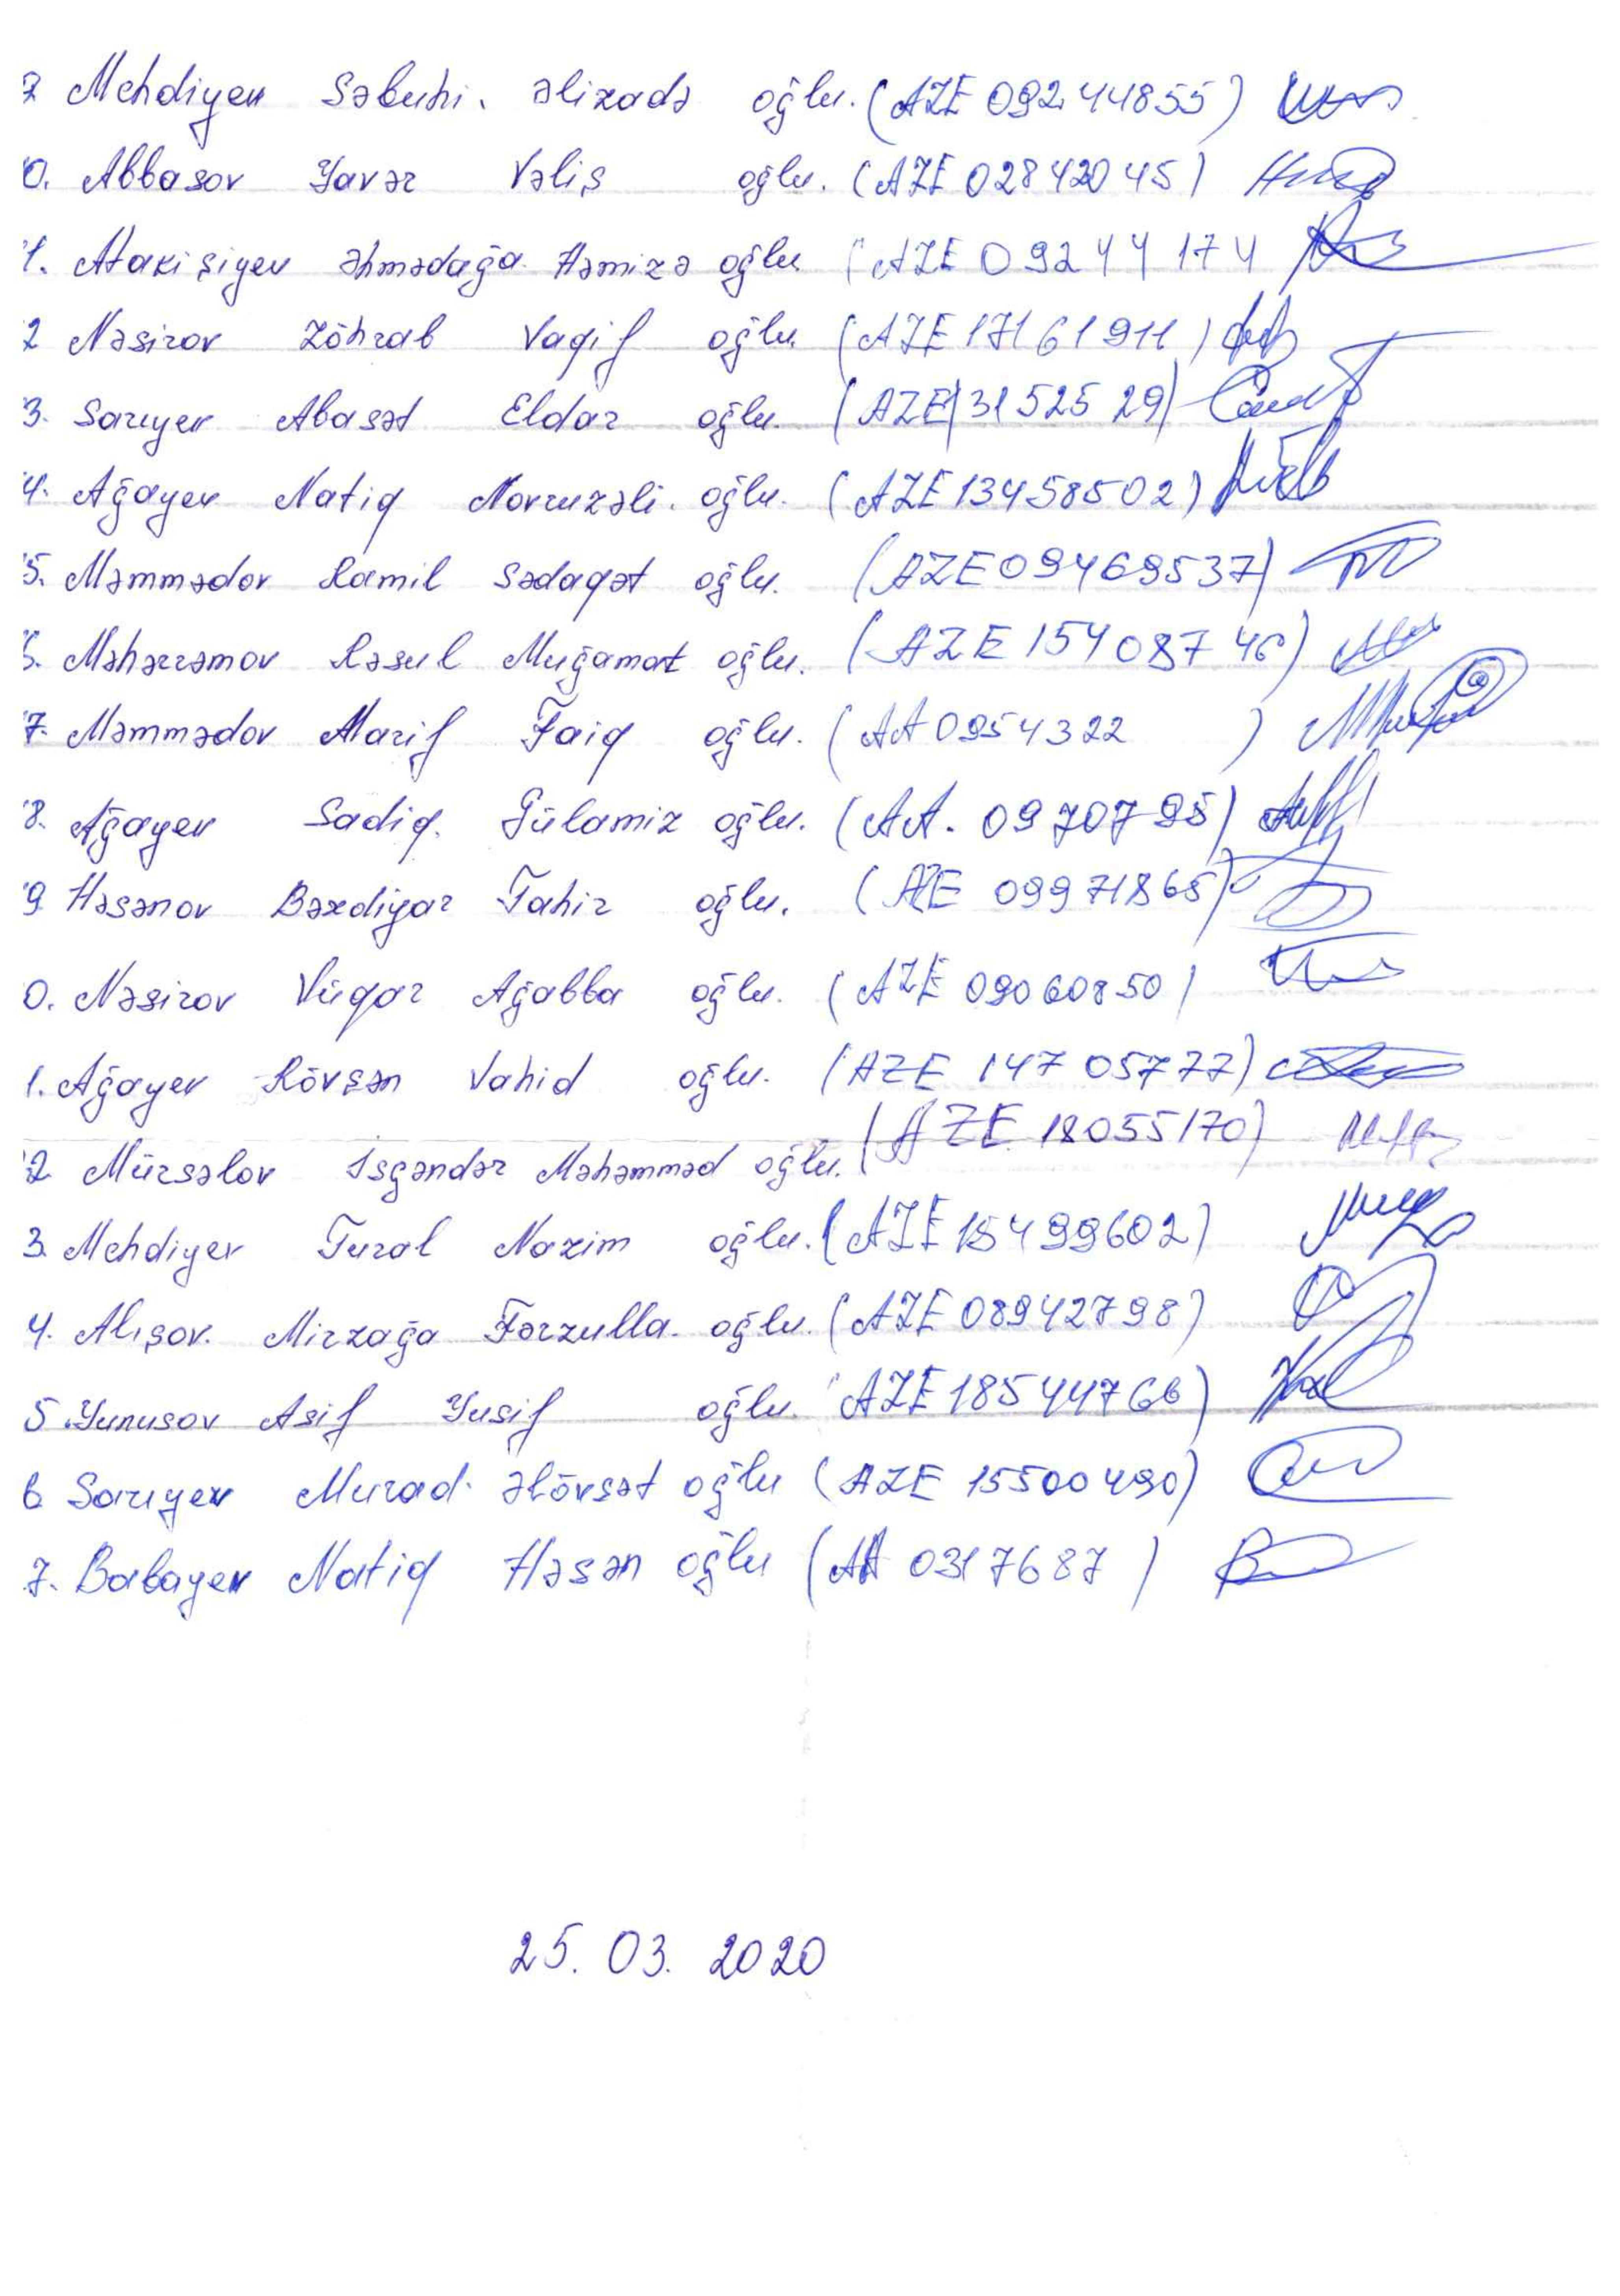 9 Mehdiyev Səbuhi. Əlizadə oğlu. (AZE 09244855)
0. Abbasov Yavər Vəliş oğlu. (AZE 02842045)
1. Atakişiyev Əhmədağa Həmizə oğlu (AZE 09244174
2 Nəsirov Zöhrab Vaqif oğlu (AZE 17161911)
3. Sarıyev Abasət Eldar oğlu. (AZE 13152529)
4. Ağayev Natiq Novruzəli. oğlu. (AZE 13458502)
5. Məmmədov Ramil Sədaqət oğlu. (AZE 09469537)
6. Məhərrəmov Rəsul Muğamat oğlu. (AZE 15408746)
7. Məmmədov Marif Faiq oğlu. (AA 0954322)
8. Ağayev Sadiq. Gülamiz oğlu. (AA. 0970795)
9 Həsənov Bəxdiyar Tahir oğlu. (AZE 09971865)
0. Nəsirov Vüqar Ağabba oğlu. (AZE 09060850)
1. Ağayev Rövşən Vahid oğlu. (AZE 14705777)
2 Mürsəlov Isgəndər Məhəmməd oğlu. (AZE 18055170)
3. Mehdiyev Tural Nazim oğlu. (AZE 15499602)
4. Alışov. Mirzağa Fərzulla oğlu. (AZE 08942798)
5. Yunusov Asif Yusif oğlu. AZE 18544766)
6 Sarıyev Murad. Əlövsət oğlu (AZE 15500490)
7. Babayev Natiq Həsən oğlu (AA 0317687)
25. 03. 2020